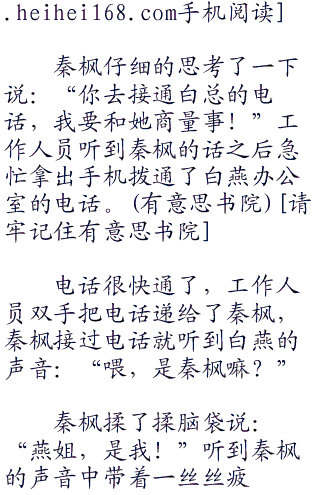 .heihei168.com手机阅读]
秦枫仔细的思考了一下
说：“你去接通白总的电
话，我要和她商量事！”工
作人员听到秦枫的话之后急
忙拿出手机拨通了白燕办公
室的电话。(有意思书院)[请
牢记住有意思书院]
电话很快通了，工作人
员双手把电话递给了秦枫，
秦枫接过电话就听到白燕的
声音：“喂，是秦枫嘛？”
秦枫揉了揉脑袋说：
“燕姐，是我！”听到秦枫
的声音中带着一丝丝疲